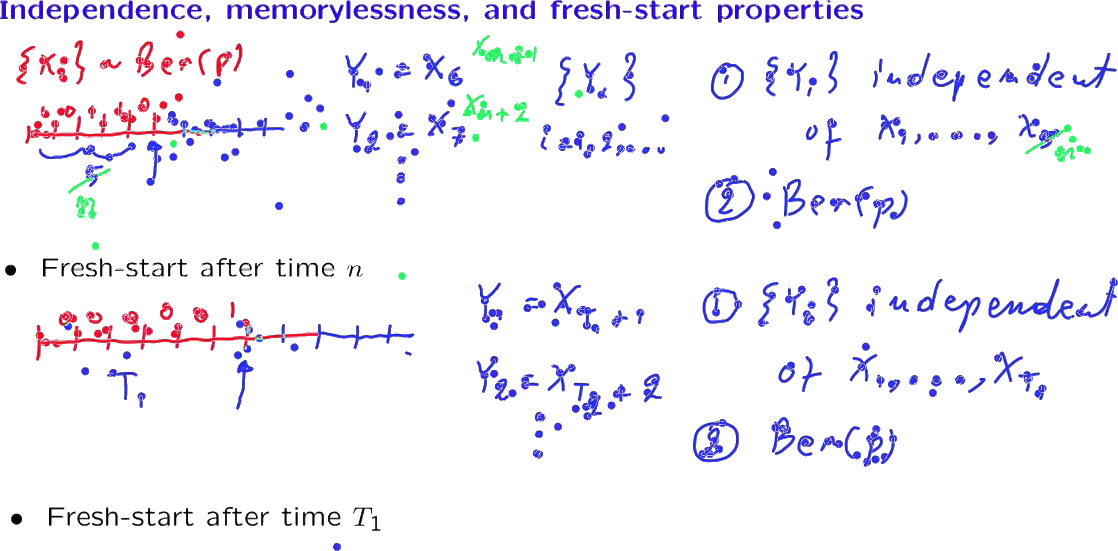 Independence, memorylessness, and fresh-start properties
{X_i} ~ Ber(p)
Y_1 = X_6 X_{n+1}
Y_2 = X_7 X_{n+2}
{Y_i}
i=1,2,...
① {Y_i} independent
of X_1, ..., X_5 n
② Ber(p)
1 0 1 1 1 0
5
n
• Fresh-start after time n
0 0 0 0 0 1
T_1
Y_1 = X_{T_1+1}
Y_2 = X_{T_1+2}
① {Y_i} independent
of X_1, ..., X_{T_1}
② Ber(p)
• Fresh-start after time T_1